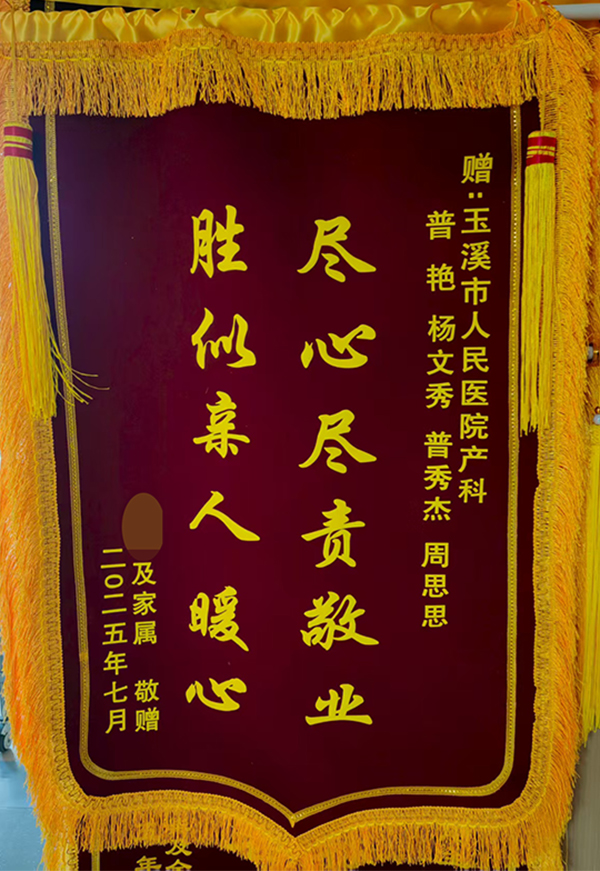 赠:玉溪市人民医院产科
普艳 杨文秀 普秀杰 周思思
尽心尽责敬业
胜似亲人暖心
及家属 敬赠
二〇二五年七月